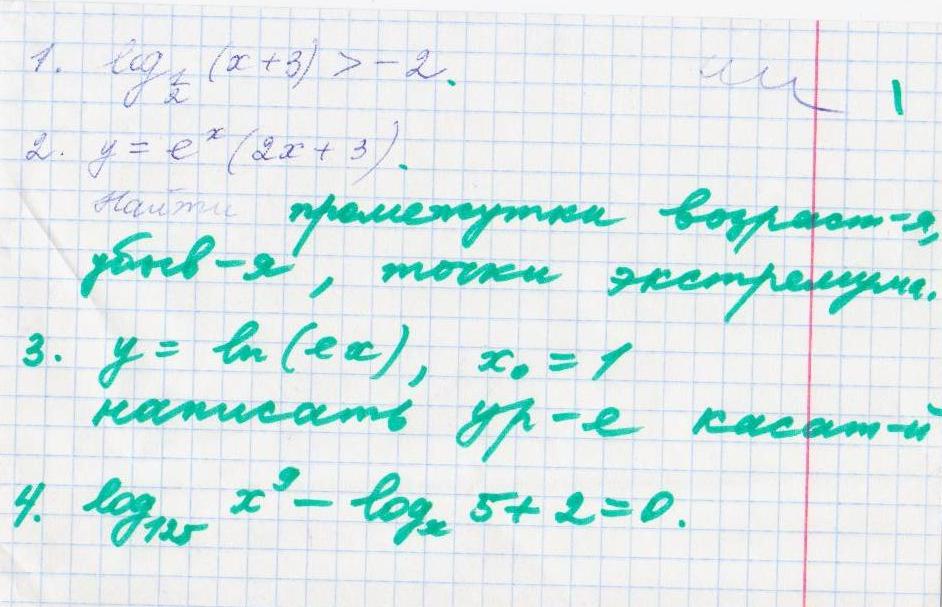 1. log_{1/2} (x+3) > -2.
1
2. y = e^x (2x+3).
Найти промежутки возраст-я,
убыв-я, точки экстремума.
3. y = ln(ex), x₀ = 1
написать ур-е касат-й
4. log_{125} x^9 - log_x 5 + 2 = 0.